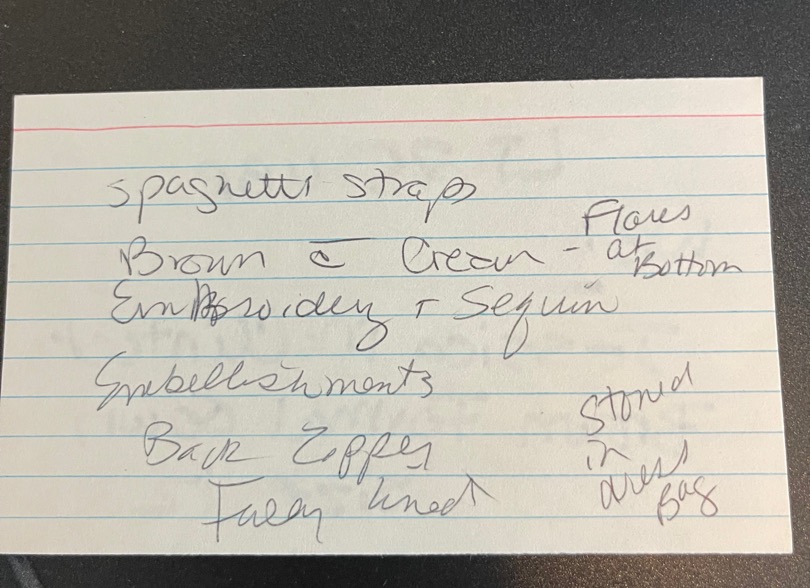 spaghetti straps
Brown c̄ Cream - Flares
at Bottom
Embroidery + Sequin
Embellishments
Back Zipper
Fully lined
Stored
in
dress
Bag